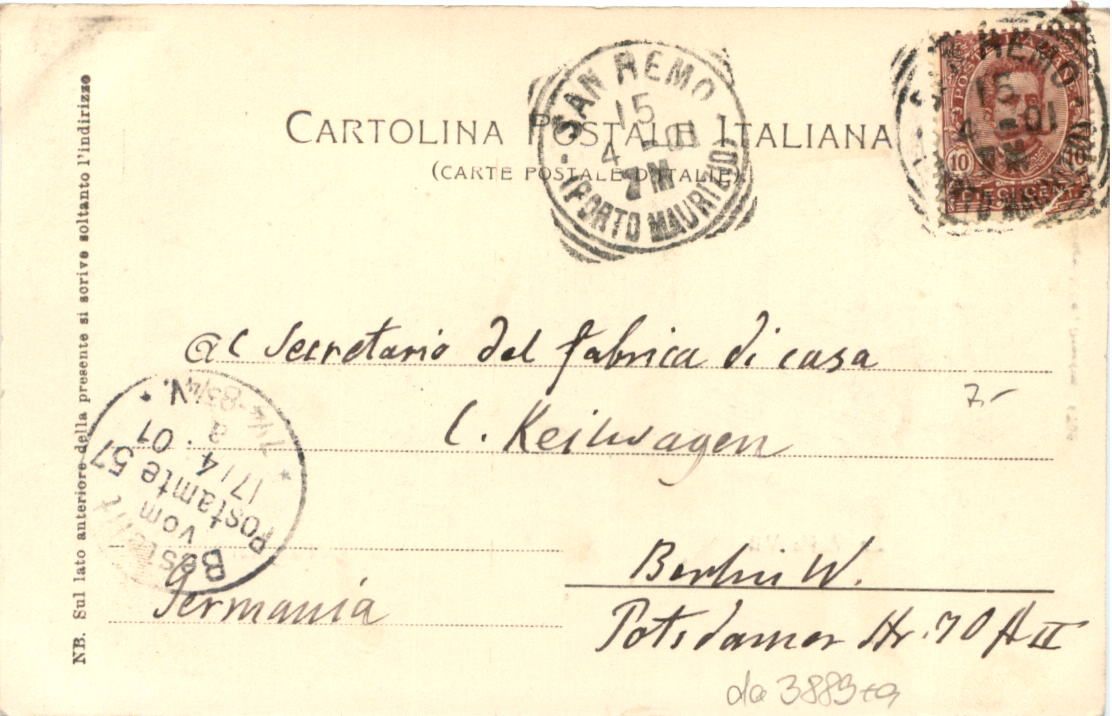 CARTOLINA POSTALE ITALIANA
(CARTE POSTALE D'ITALIE)
SAN REMO
15
4 - 01
7 M
(PORTO MAURIZIO)
10 10
DIECI CENT
REMO
15
4 - 01
NB. Sul lato anteriore della presente si scrive soltanto l'indirizzo
Al Secretario del fabrica di casa
C. Keilwagen
7-
Bestellt
vom
Postamte 57
17/4 01
Germania
Berlin W.
Potsdamer Str. 70 A II
da 3889+a